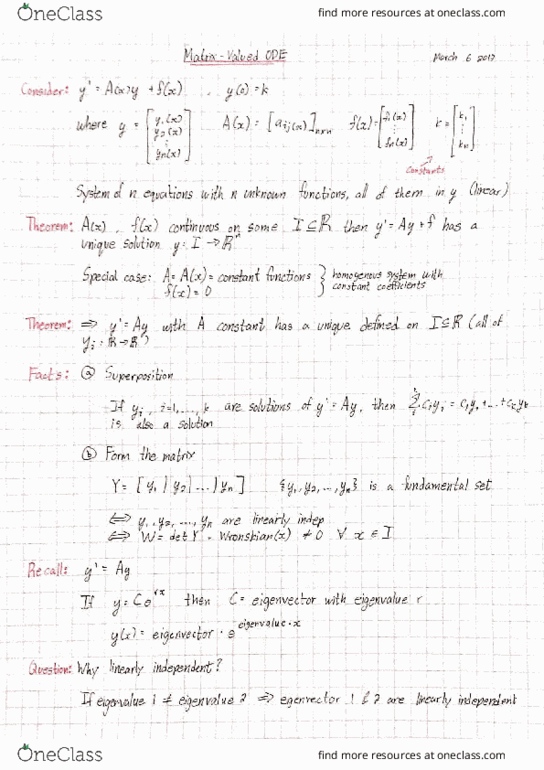 OneClass find more resources at oneclass.com
Matrix-Valued ODE March 6 2017
Consider: y' = A(x)y + f(x) , y(0) = k
where y = [y₁(x) y₂(x) ⋮ yₙ(x)] A(x) = [aᵢⱼ(x)]ₙₓₙ f(x) = [f₁(x) ⋮ fₙ(x)] k = [k₁ ⋮ kₙ]
Constants
System of n equations with n unknown functions, all of them in y (linear)
Theorem: A(x), f(x) continuous on some I ⊆ ℝ then y' = Ay + f has a
unique solution y: I → ℝⁿ
Special case: A = A(x) = constant functions } homogenous system with
f(x) = 0 constant coefficients
Theorem: ⇒ y' = Ay with A constant has a unique defined on I ⊆ ℝ (all of
yᵢ : ℝ → ℝⁿ)
Facts: ⓐ Superposition
If yᵢ, i=1,...,k are solutions of y' = Ay, then Σ cᵢyᵢ = c₁y₁ + ... + cₖyₖ
is also a solution
ⓑ Form the matrix
Y = [y₁ | y₂ | ... | yₙ] {y₁, y₂, ..., yₙ} is a fundamental set
⇔ y₁, y₂, ..., yₙ are linearly indep
⇔ W = det Y = Wronskian(x) ≠ 0 ∀ x ∈ I
Recall: y' = Ay
If y = Ceʳˣ then C = eigenvector with eigenvalue r
y(x) = eigenvector · e^eigenvalue·x
Question: Why linearly independent?
If eigenvalue 1 ≠ eigenvalue 2 ⇒ eigenvector 1 & 2 are linearly independent
OneClass find more resources at oneclass.com